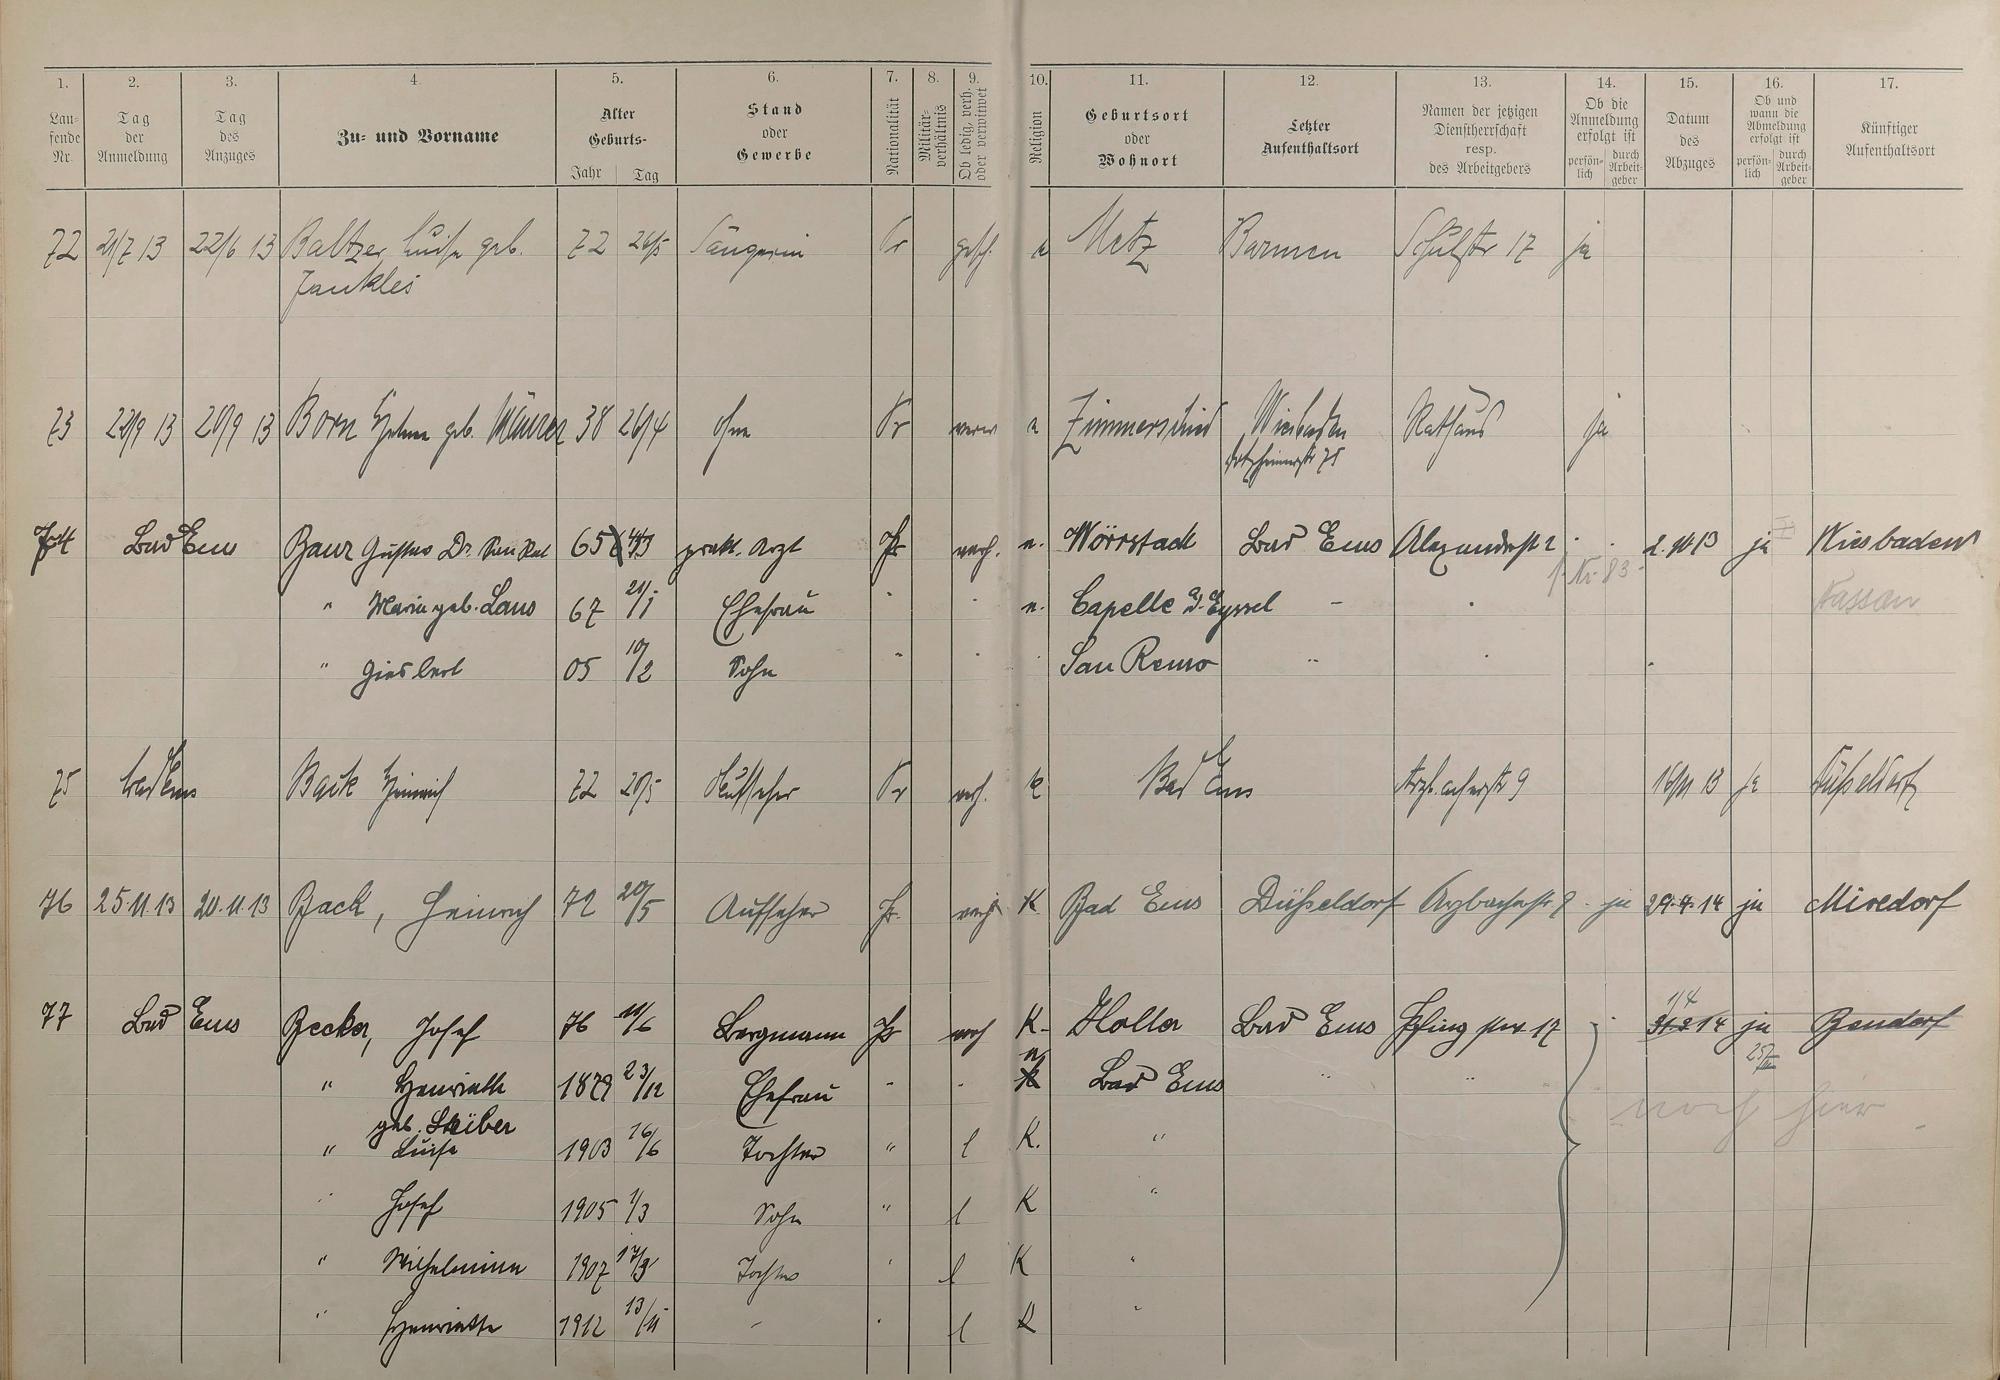 1. 2. 3. 4. 5. 6. 7. 8. 9. 10. 11. 12. 13. 14. 15. 16. 17.
Lau-
fende
Nr.
Tag
der
Anmeldung
Tag
des
Anzuges
Zu- und Vorname
Alter
Geburts-
Jahr Tag
Stand
oder
Gewerbe
Nationalität
Militär-
verhältnis
Ob ledig, verh.
oder verwitwet
Religion
Geburtsort
oder
Wohnort
Letzter
Aufenthaltsort
Namen der jetzigen
Dienstherrschaft
resp.
des Arbeitgebers
Ob die
Anmeldung
erfolgt ist
persön-
lich
durch
Arbeit-
geber
Datum
des
Abzuges
Ob und
wann die
Abmeldung
erfolgt ist
persön-
lich
durch
Arbeit-
geber
Künftiger
Aufenthaltsort
72 21/7 13 22/6 13 Baltzer Luise geb. 72 26/5 Sängerin Pr gesch. Metz Barmen Schulstr 17 ja
73 13 20/9 13 Born geb. Maurer 38 26/4 ohne Pr verw Zimmerschied Wiesbaden Rathaus ja
74 Bad Ems Gustav Dr. 65 prakt. Arzt Pr verh. Wörrstadt Bad Ems Alexanderstr 2 13 ja Wiesbaden
f. Nr. 83
" Maria geb. 67 21/1 Ehefrau " " Capelle Nassau
" Giesbert 05 10/2 Sohn " " San Remo " "
75 Bad Ems Back Heinrich 72 20/5 Aufseher Pr verh. k Bad Ems Arzbacherstr 9 16/11 13 ja Düsseldorf
76 25.11.13 20.11.13 Back, Heinrich 72 20/5 Aufseher Pr. verh K Bad Ems Düsseldorf Arzbacherstr 9 ja 29.4.14 ja
77 Bad Ems Becker, Josef 76 Bergmann Pr verh K. Holler Bad Ems 17 1/4 14 ja Bendorf
" Henriette 1879 23/12 Ehefrau " " Bad Ems " "
geb. noch hier
" Luise 1903 16/6 Tochter " l K. "
" Josef 1905 1/3 Sohn " l K "
" Wilhelmine 1907 17/9 Tochter " l K "
" Henriette 1912 13/11 " " l K "